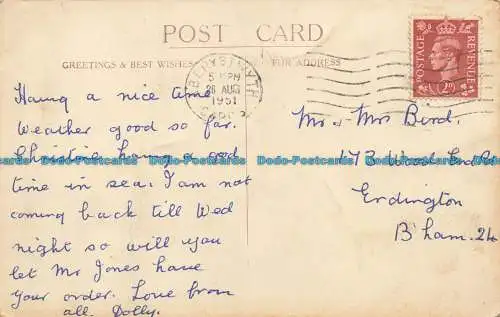 POST CARD
GREETINGS & BEST WISHES
FOR ADDRESS
ABERYSTWYTH
5 - PM
26 AUG
1951
POSTAGE
REVENUE
Having a nice time
Weather good so far.
Christine having a good
time in sea. I am not
coming back till Wed
night so will you
let Mr Jones have
your order. Love from
all. Dolly.
Mr & Mrs Bird.
173 Wood End Rd
Erdington
B'ham. 24
Dodo-Postcards.com